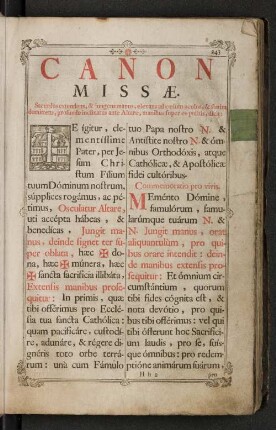 243
CANON
MISSÆ.
E igitur, cle-
mentissime
Pater, per Je-
sum Chri-
stum Filium
tuum Dóminum nostrum,
súpplices rogámus, ac pé-
timus, Osculatur Altare,
uti accépta hábeas, &
benedícas, Jungit ma-
nus, deinde signet ter su-
per oblata, hæc ✠ do-
na, hæc ✠ múnera, hæc
✠ sancta sacrifícia illibáta,
Extensis manibus prose-
quitur: In primis, quæ
tibi offérimus pro Ecclé-
sia tua sancta Cathólica:
quam pacificáre, custodí-
re, adunáre, & régere di-
gnéris toto orbe terrá-
rum: una cum Fámulo
tuo Papa nostro N. &
Antístite nostro N. & óm-
nibus Orthodóxis, atque
Cathólicæ, & Apostólicæ
fídei cultóribus.
Commemoratio pro vivis.
MEménto Dómine,
famulórum, famu-
larúmque tuárum N. &
N. Jungit manus, orat
aliquantulum, pro qui-
bus orare intendit: dein-
de manibus extensis pro-
sequitur: Et ómnium cir-
cumstántium, quorum
tibi fides cógnita est, &
nota devótio, pro qui-
bus tibi offérimus: vel qui
tibi ófferunt hoc Sacrifíci-
um laudis, pro se, suís-
que ómnibus: pro redem-
ptióne animárum suárum,
Hh2
pro